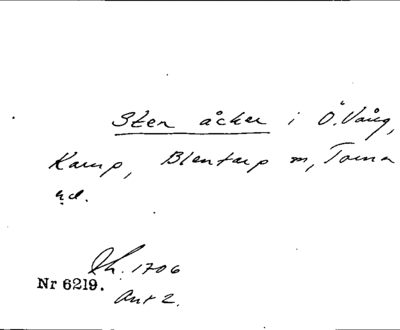 Sten åcker i Ö. Vång,
Kamp, Blentarp m, Torna
hd.
Lh. 1706
Nr 6219.
Ant 2.